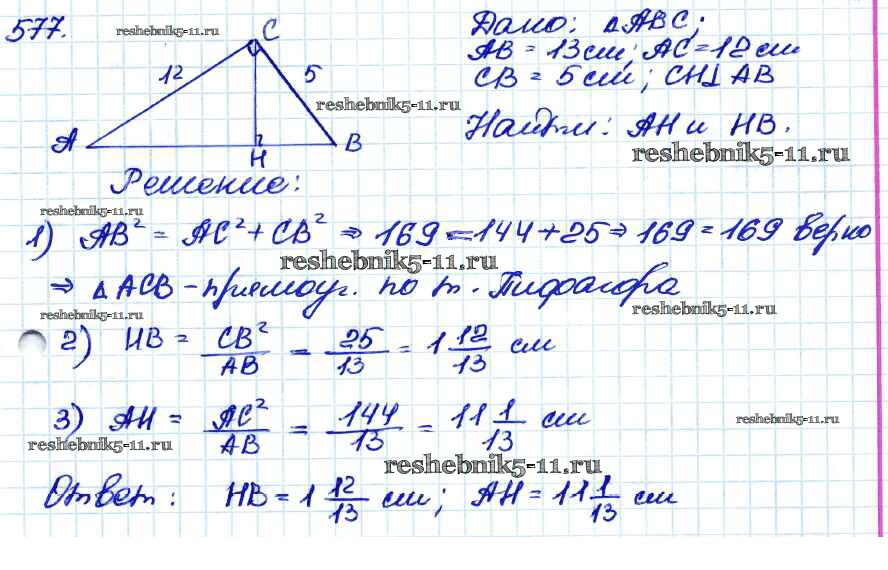 577.
reshebnik5-11.ru
C
12
5
A
H
B
Дано: △ABC;
AB = 13 см; AC = 12 см
CB = 5 см; CH⊥AB
reshebnik5-11.ru
Найти: AH и HB.
reshebnik5-11.ru
Решение:
reshebnik5-11.ru
1) AB² = AC² + CB² ⇒ 169 = 144 + 25 ⇒ 169 = 169 верно
reshebnik5-11.ru
⇒ △ACB - прямоуг. по т. Пифагора
reshebnik5-11.ru
reshebnik5-11.ru
2) HB = CB²/AB = 25/13 = 1 12/13 см
3) AH = AC²/AB = 144/13 = 11 1/13 см
reshebnik5-11.ru
reshebnik5-11.ru
reshebnik5-11.ru
Ответ: HB = 1 12/13 см; AH = 11 1/13 см